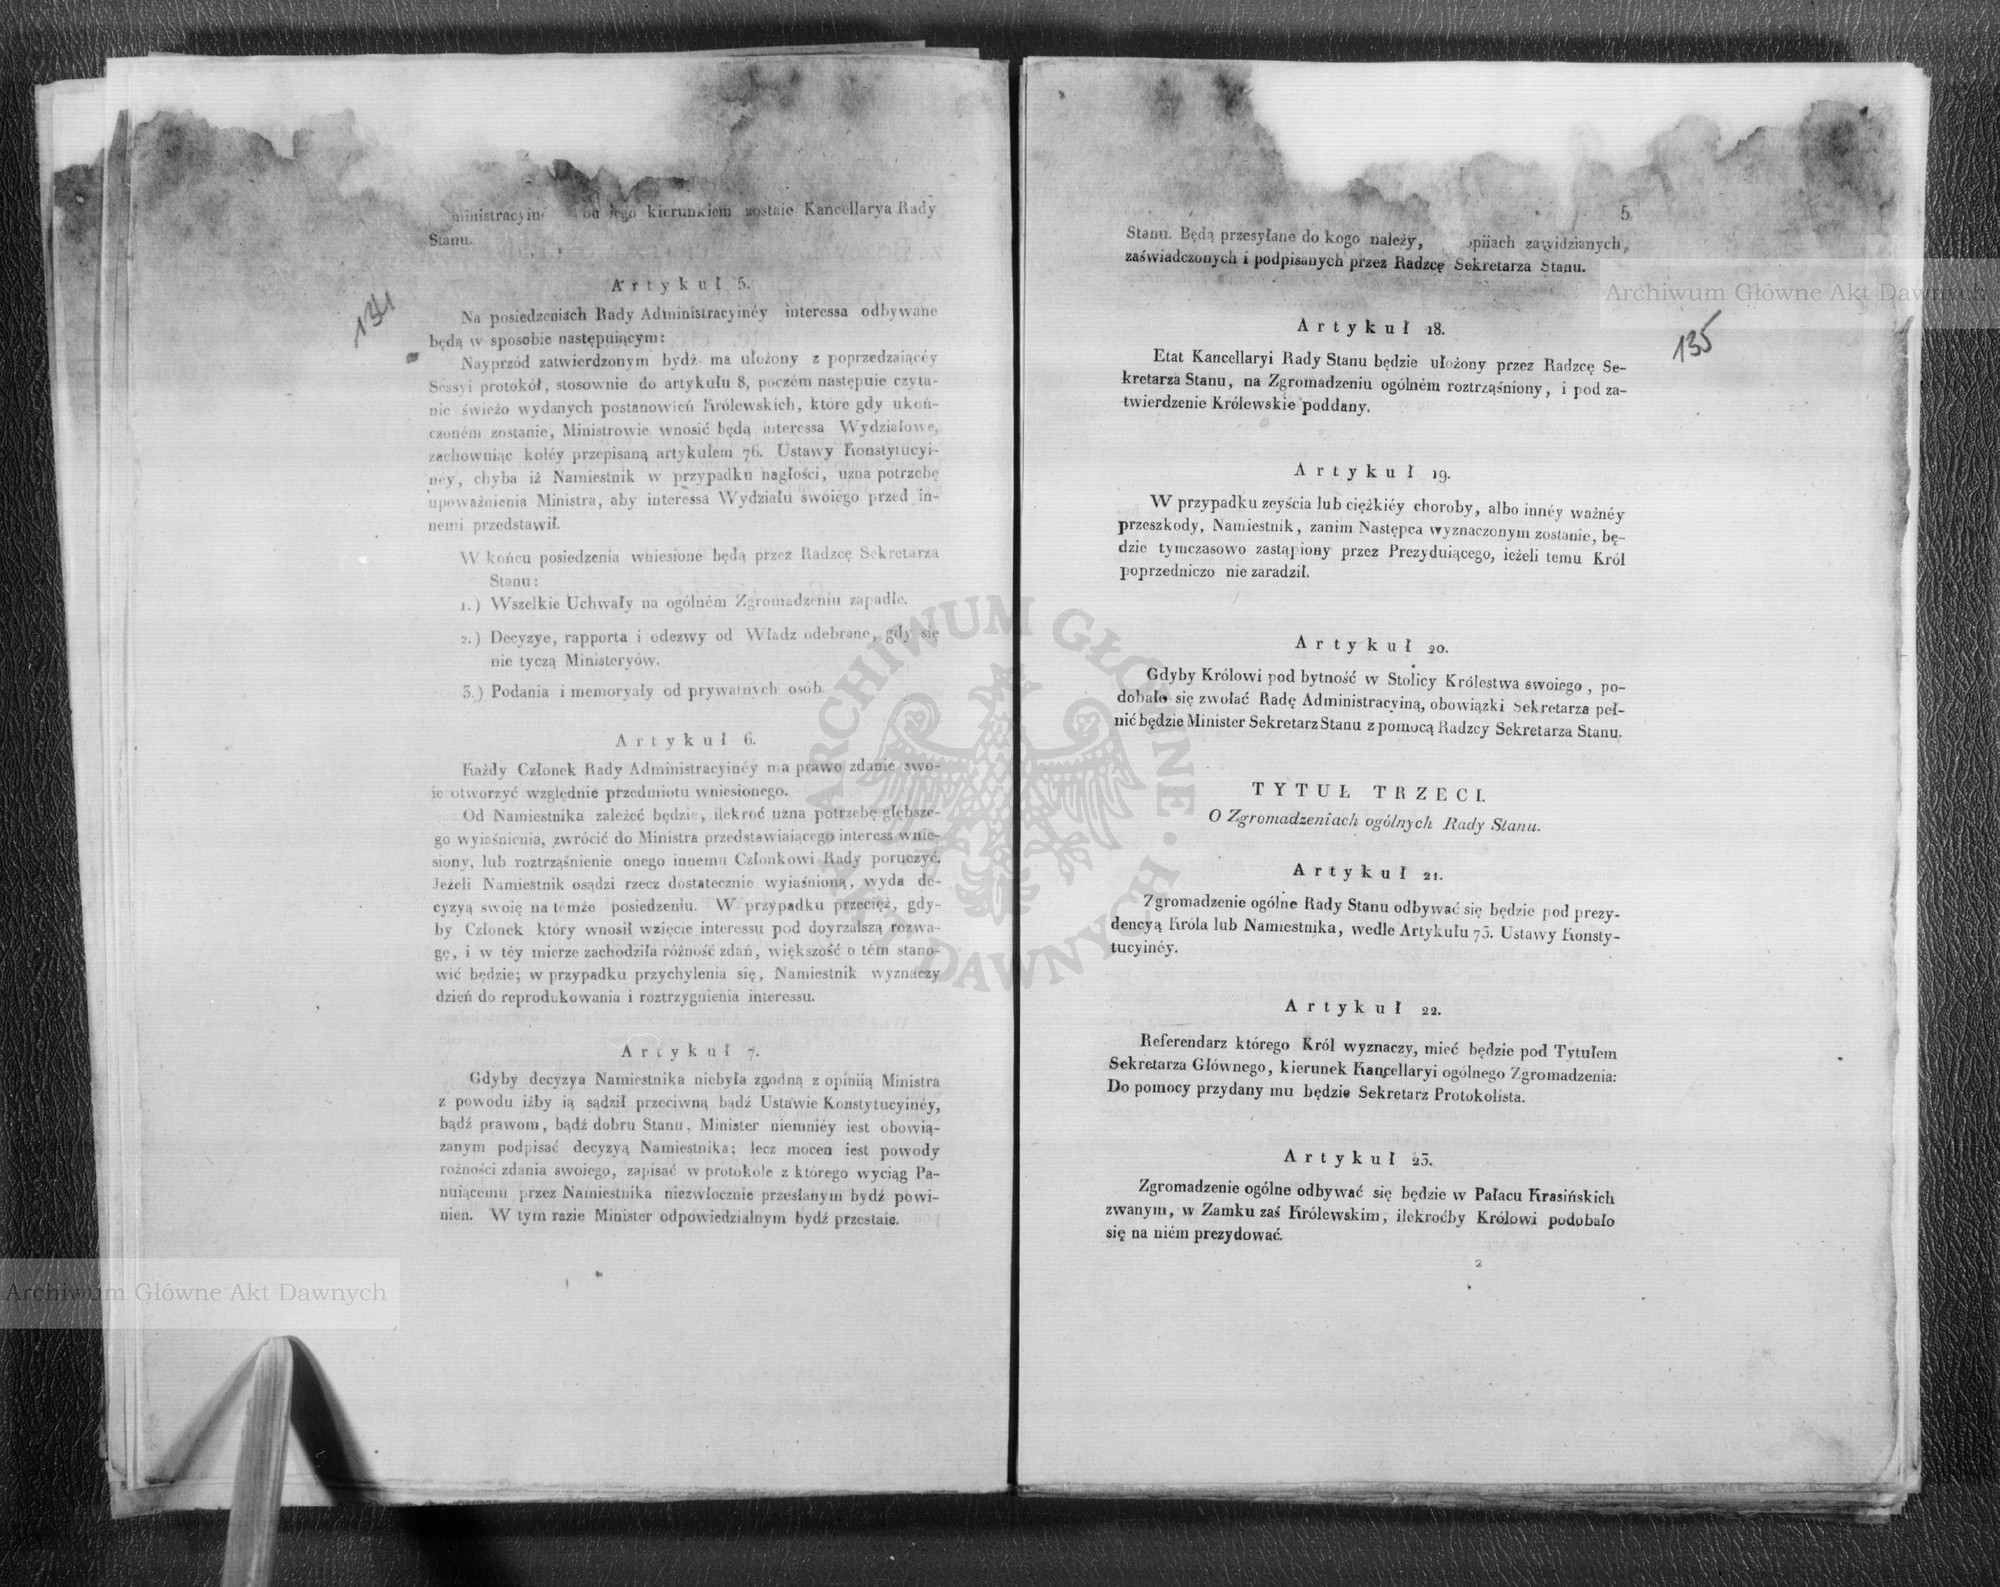 ministracyin od jego kierunkiem zostaie Kancellarya Rady
Stanu.
Artykuł 5.
134
Na posiedzeniach Rady Administracyinéy interessa odbywane
będą w sposobie następuiącym:
Nayprzód zatwierdzonym bydź ma ułożony z poprzedzaiącéy
Sessyi protokół, stosownie do artykułu 8, poczém następuie czyta-
nie świeżo wydanych postanowień Królewskich, które gdy ukoń-
czoném zostanie, Ministrowie wnosić będą interessa Wydziałowe,
zachowuiąc koléy przepisaną artykułem 76. Ustawy Konstytucyi-
ney, chyba iż Namiestnik w przypadku nagłości, uzna potrzebę
upoważnienia Ministra, aby interessa Wydziału swoiego przed in-
nemi przedstawił.
W końcu posiedzenia wniesione będą przez Radzcę Sekretarza
Stanu:
1.) Wszelkie Uchwały na ogólném Zgromadzeniu zapadłe.
2.) Decyzye, rapporta i odezwy od Władz odebrane, gdy się
nie tyczą Ministeryów.
3.) Podania i memoryały od prywatnych osób.
Artykuł 6.
Każdy Członek Rady Administracyinéy ma prawo zdanie swo-
ie otworzyć względnie przedmiotu wniesionego.
Od Namiestnika zależeć będzie, ilekroć uzna potrzebę głębsze-
go wyiaśnienia, zwrócić do Ministra przedstawiaiącego interess wnie-
siony, lub roztrząśnienie onego innemu Członkowi Rady poruczyć.
Jeżeli Namiestnik osądzi rzecz dostatecznie wyiaśnioną, wyda de-
cyzyą swoię na temże posiedzeniu. W przypadku przecięż, gdy-
by Członek który wnosił wzięcie interessu pod doyrzalszą rozwa-
gę, i w téy mierze zachodziła różność zdań, większość o tém stano-
wić będzie; w przypadku przychylenia się, Namiestnik wyznaczy
dzień do reprodukowania i roztrzygnienia interessu.
Artykuł 7.
Gdyby decyzya Namiestnika niebyła zgodną z opiniią Ministra
z powodu iżby ią sądził przeciwną bądź Ustawie Konstytucyinéy,
bądź prawom, bądź dobru Stanu, Minister niemniéy iest obowią-
zanym podpisać decyzyą Namiestnika; lecz mocen iest powody
rożności zdania swoiego, zapisać w protokole z którego wyciąg Pa-
nuiącemu przez Namiestnika niezwłocznie przesłanym bydź powi-
nien. W tym razie Minister odpowiedzialnym bydź przestaie.
Archiwum Główne Akt Dawnych
ARCHIWUM GŁÓWNE AKT DAWNYCH
5
Stanu. Będą przesyłane do kogo należy, opiiach zawidzianych,
zaświadczonych i podpisanych przez Radzcę Sekretarza Stanu.
Archiwum Główne Akt Dawnych
135
Artykuł 18.
Etat Kancellaryi Rady Stanu będzie ułożony przez Radzcę Se-
kretarza Stanu, na Zgromadzeniu ogólném roztrząśniony, i pod za-
twierdzenie Królewskie poddany.
Artykuł 19.
W przypadku zeyścia lub ciężkiéy choroby, albo innéy ważnéy
przeszkody, Namiestnik, zanim Następca wyznaczonym zostanie, bę-
dzie tymczasowo zastąpiony przez Prezyduiącego, ieżeli temu Król
poprzedniczo nie zaradził.
Artykuł 20.
Gdyby Królowi pod bytność w Stolicy Królestwa swoiego, po-
dobało się zwołać Radę Administracyiną, obowiązki Sekretarza peł-
nić będzie Minister Sekretarz Stanu z pomocą Radzcy Sekretarza Stanu.
TYTUŁ TRZECI.
O Zgromadzeniach ogólnych Rady Stanu.
Artykuł 21.
Zgromadzenie ogólne Rady Stanu odbywać się będzie pod prezy-
dencyą Króla lub Namiestnika, wedle Artykułu 73. Ustawy Konsty-
tucyinéy.
Artykuł 22.
Referendarz którego Król wyznaczy, mieć będzie pod Tytułem
Sekretarza Głównego, kierunek Kancellaryi ogólnego Zgromadzenia:
Do pomocy przydany mu będzie Sekretarz Protokolista.
Artykuł 23.
Zgromadzenie ogólne odbywać się będzie w Pałacu Krasińskich
zwanym, w Zamku zaś Królewskim, ilekroćby Królowi podobało
się na niém prezydować.
2